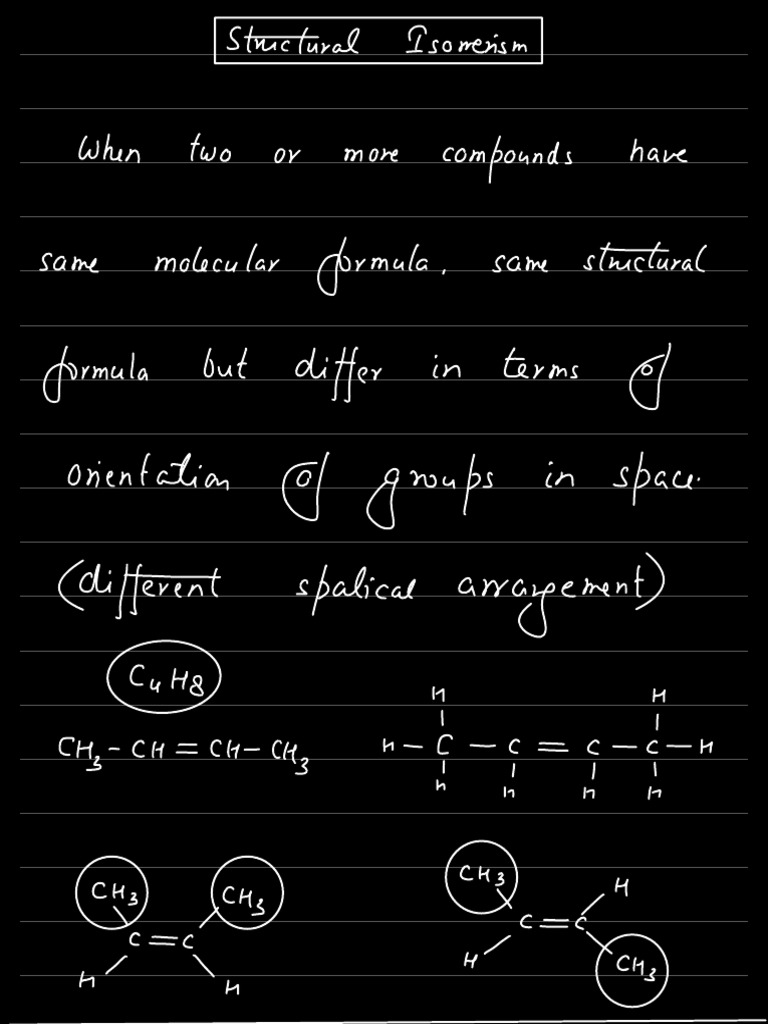 Structural Isomerism
When two or more compounds have
same molecular formula, same structural
formula but differ in terms of
orientation of groups in space.
(different spatical arrangement)
C4H8
CH3 - CH = CH - CH3
H H
H - C - C = C - C - H
H H H H
CH3 CH3
C = C
H H
CH3 H
C = C
H CH3